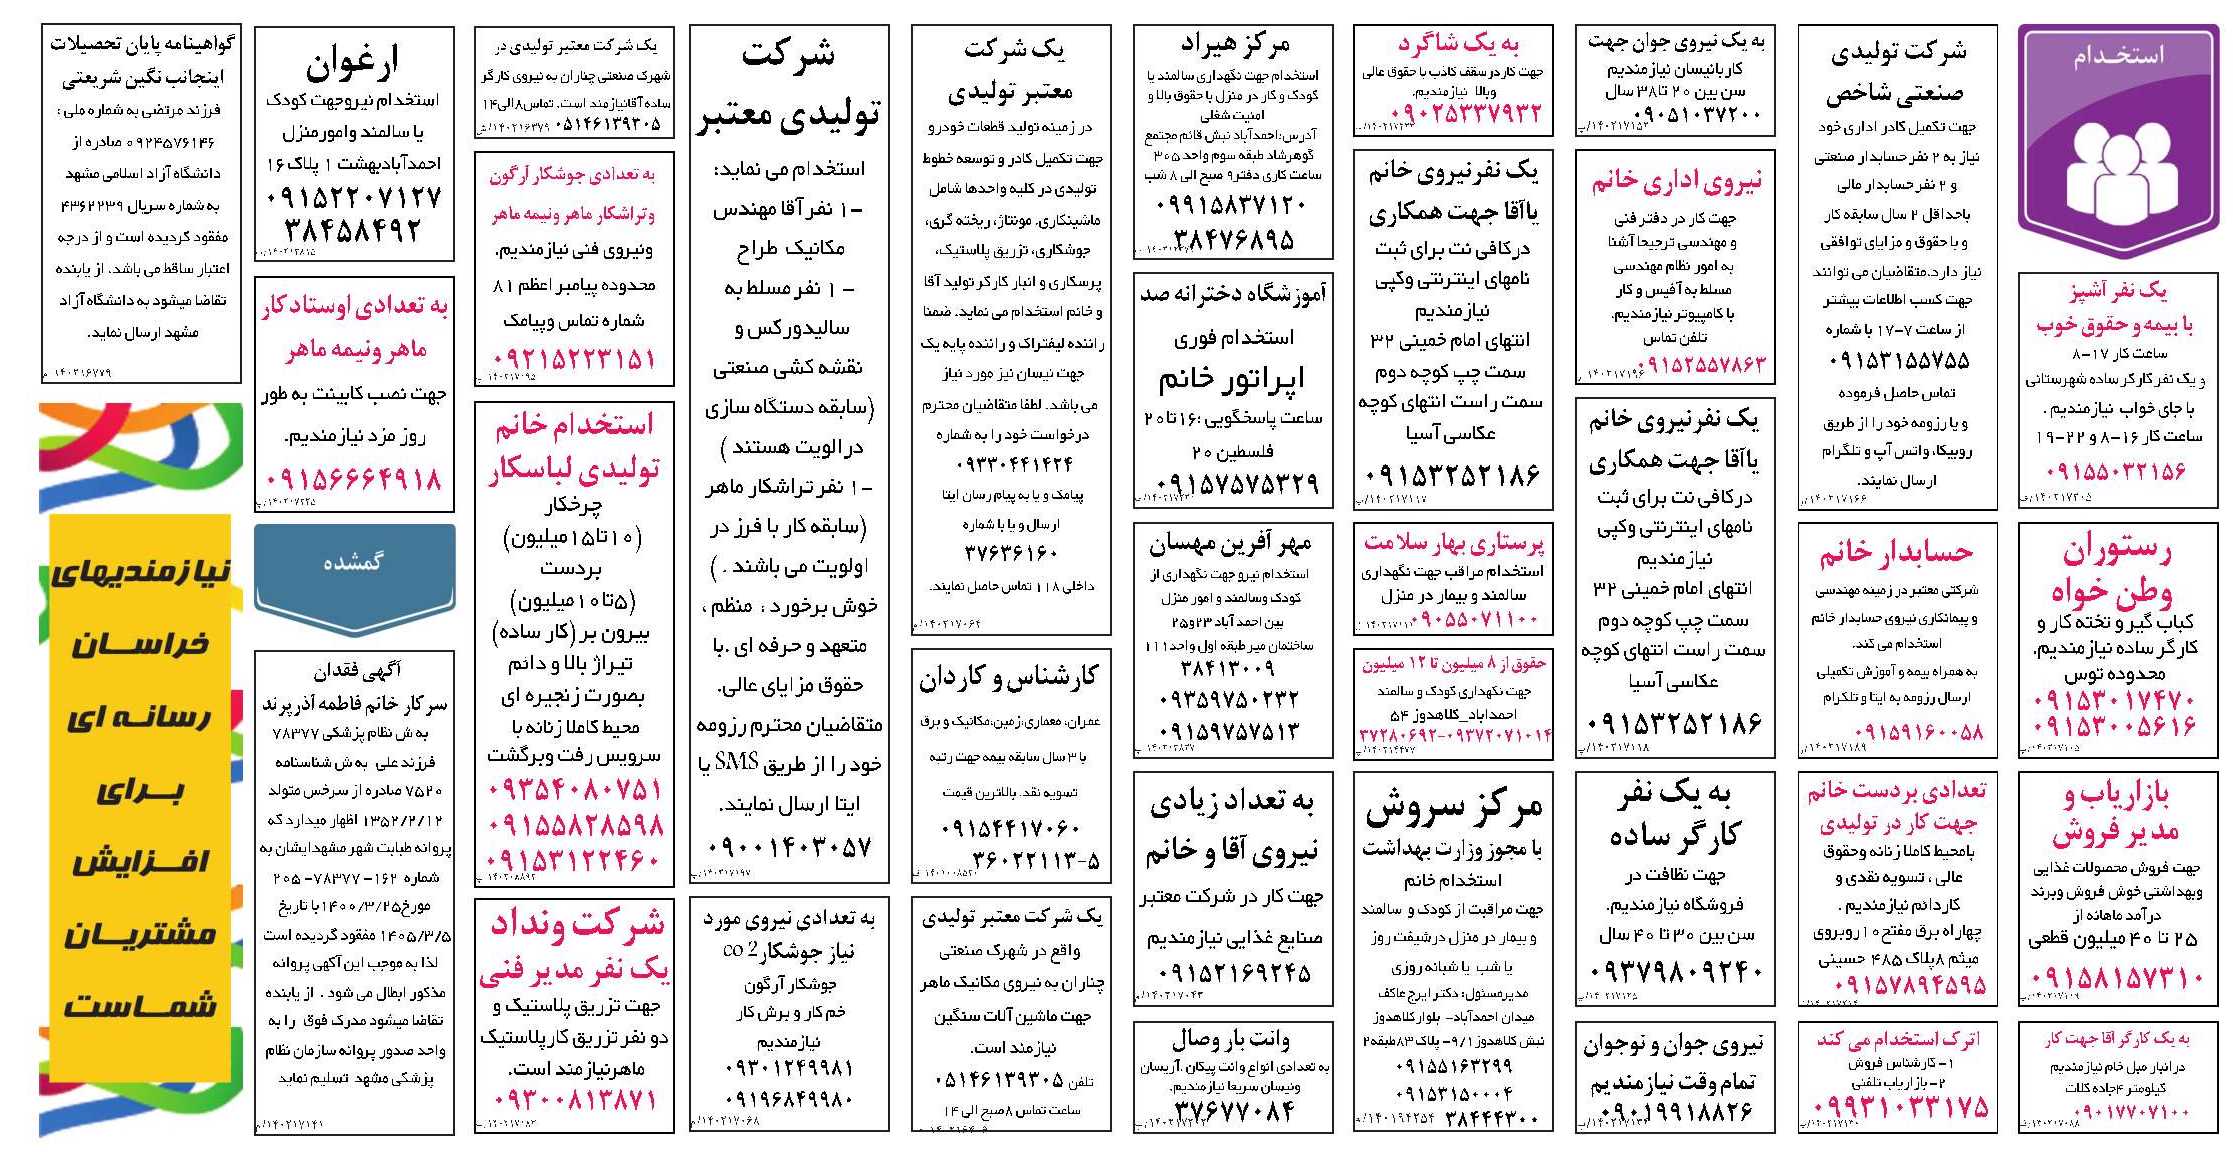 استخدام
یک نفر آشپز
با بیمه و حقوق خوب
ساعت کار ۱۷-۸
و یک نفر کارگر ساده شهرستانی
با جای خواب نیازمندیم .
ساعت کار ۱۶-۸ و ۲۲-۱۹
۰۹۱۵۵۰۳۲۱۵۶
رستوران
وطن خواه
کباب گیر و تخته کار و
کارگر ساده نیازمندیم.
محدوده توس
۰۹۱۵۳۰۱۷۴۷۰
۰۹۱۵۳۰۰۵۶۱۶
بازاریاب و
مدیر فروش
جهت فروش محصولات غذایی
وبهداشتی خوش فروش وبرند
درآمد ماهانه از
۲۵ تا ۴۰ میلیون قطعی
۰۹۱۵۸۱۵۷۳۱۰
به یک کارگر آقا جهت کار
درانبار مبل خام نیازمندیم
کیلومتر ۴جاده کلات
۰۹۰۱۷۷۰۷۱۰۰
شرکت تولیدی
صنعتی شاخص
جهت تکمیل کادر اداری خود
نیاز به ۲ نفر حسابدار صنعتی
و ۲ نفر حسابدار مالی
باحداقل ۲ سال سابقه کار
و با حقوق و مزایای توافقی
نیاز دارد.متقاضیان می توانند
جهت کسب اطلاعات بیشتر
از ساعت ۷-۱۷ با شماره
۰۹۱۵۳۱۵۵۷۵۵
تماس حاصل فرموده
و یا رزومه خود را از طریق
روبیکا، واتس آپ و تلگرام
ارسال نمایند.
حسابدار خانم
شرکتی معتبر در زمینه مهندسی
و پیمانکاری نیروی حسابدار خانم
استخدام می کند.
به همراه بیمه و آموزش تکمیلی
ارسال رزومه به ایتا و تلگرام
۰۹۱۵۹۱۶۰۰۵۸
تعدادی بردست خانم
جهت کار در تولیدی
بامحیط کاملا زنانه وحقوق
عالی ، تسویه نقدی و
کاردائم نیازمندیم .
چهاراه برق مفتح۱۰روبروی
میثم ۸پلاک ۴۸۵ حسینی
۰۹۱۵۷۸۹۴۵۹۵
اترک استخدام می کند
۱- کارشناس فروش
۲- بازاریاب تلفنی
۰۹۹۳۱۰۳۳۱۷۵
به یک نیروی جوان جهت
کاربانیسان نیازمندیم
سن بین ۲۰ تا۳۸ سال
۰۹۰۵۱۰۳۷۲۰۰
نیروی اداری خانم
جهت کار در دفتر فنی
و مهندسی ترجیحا آشنا
به امور نظام مهندسی
مسلط به آفیس و کار
با کامپیوتر نیازمندیم.
تلفن تماس
۰۹۱۵۲۵۵۷۸۶۳
یک نفرنیروی خانم
یاآقا جهت همکاری
درکافی نت برای ثبت
نامهای اینترنتی وکپی
نیازمندیم
انتهای امام خمینی ۳۲
سمت چپ کوچه دوم
سمت راست انتهای کوچه
عکاسی آسیا
۰۹۱۵۳۲۵۲۱۸۶
به یک نفر
کارگر ساده
جهت نظافت در
فروشگاه نیازمندیم.
سن بین ۳۰ تا ۴۰ سال
۰۹۳۷۹۸۰۹۲۴۰
نیروی جوان و نوجوان
تمام وقت نیازمندیم
۰۹۰۱۹۹۱۸۸۲۶
به یک شاگرد
جهت کار در سقف کاذب با حقوق عالی
وبالا نیازمندیم.
۰۹۰۲۵۳۳۷۹۳۲
یک نفرنیروی خانم
یاآقا جهت همکاری
درکافی نت برای ثبت
نامهای اینترنتی وکپی
نیازمندیم
انتهای امام خمینی ۳۲
سمت چپ کوچه دوم
سمت راست انتهای کوچه
عکاسی آسیا
۰۹۱۵۳۲۵۲۱۸۶
پرستاری بهار سلامت
استخدام مراقب جهت نگهداری
سالمند و بیمار در منزل
۰۹۰۵۵۰۷۱۱۰۰
حقوق از ۸ میلیون تا ۱۲ میلیون
جهت نگهداری کودک و سالمند
احمداباد_کلاهدوز ۵۴
۳۷۲۸۰۶۹۲-۰۹۳۷۲۰۷۱۰۱۴
مرکز سروش
با مجوز وزارت بهداشت
استخدام خانم
جهت مراقبت از کودک و سالمند
و بیمار در منزل درشیفت روز
یا شب یا شبانه روزی
مدیرمسئول: دکتر ایرج عاکف
میدان احمدآباد- بلوار کلاهدوز
نبش کلاهدوز ۹/۱- پلاک ۸۳طبقه۲
۰۹۱۵۵۱۶۳۲۹۹
۰۹۱۵۳۱۵۰۰۰۴
۳۸۴۴۴۳۰۰
مرکز هیراد
استخدام جهت نگهداری سالمند یا
کودک و کار در منزل با حقوق بالا و
امنیت شغلی
آدرس:احمدآباد نبش قائم مجتمع
گوهرشاد طبقه سوم واحد ۳۰۵
ساعت کاری دفتر۹ صبح الی ۸ شب
۰۹۹۱۵۸۳۷۱۲۰
۳۸۴۷۶۸۹۵
آموزشگاه دخترانه صد
استخدام فوری
اپراتور خانم
ساعت پاسخگویی :۱۶تا۲۰
فلسطین ۲۰
۰۹۱۵۷۵۷۵۳۲۹
مهر آفرین مهسان
استخدام نیرو جهت نگهداری از
کودک وسالمند و امور منزل
بین احمد آباد ۲۳و۲۵
ساختمان میر طبقه اول واحد۱۱۱
۳۸۴۱۳۰۰۹
۰۹۳۵۹۷۵۰۲۳۲
۰۹۱۵۹۷۵۷۵۱۳
به تعداد زیادی
نیروی آقا و خانم
جهت کار در شرکت معتبر
صنایع غذایی نیازمندیم
۰۹۱۵۲۱۶۹۲۴۵
وانت بار وصال
به تعدادی انواع وانت پیکان .آریسان
ونیسان سریعا نیازمندیم.
۳۷۶۷۷۰۸۴
یک شرکت
معتبر تولیدی
در زمینه تولید قطعات خودرو
جهت تکمیل کادر و توسعه خطوط
تولیدی در کلیه واحدها شامل
ماشینکاری، مونتاژ، ریخته گری،
جوشکاری، تزریق پلاستیک،
پرسکاری و انبار کارگر تولید آقا
و خانم استخدام می نماید. ضمنا
راننده لیفتراک و راننده پایه یک
جهت نیسان نیز مورد نیاز
می باشد. لطفا متقاضیان محترم
درخواست خود را به شماره
۰۹۳۳۰۴۴۱۴۲۴
پیامک و یا به پیام رسان ایتا
ارسال و یا با شماره
۳۷۶۳۶۱۶۰
داخلی ۱۱۸ تماس حاصل نمایند.
کارشناس و کاردان
عمران، معماری،زمین،مکانیک و برق
با ۳ سال سابقه بیمه جهت رتبه
تسویه نقد. بالاترین قیمت
۰۹۱۵۴۴۱۷۰۶۰
۳۶۰۲۲۱۱۳-۵
یک شرکت معتبر تولیدی
واقع در شهرک صنعتی
چناران به نیروی مکانیک ماهر
جهت ماشین آلات سنگین
نیازمند است.
تلفن ۰۵۱۴۶۱۳۹۳۰۵
ساعت تماس ۸صبح الی ۱۴
شرکت
تولیدی معتبر
استخدام می نماید:
-۱ نفر آقا مهندس
مکانیک طراح
- ۱ نفر مسلط به
سالیدورکس و
نقشه کشی صنعتی
(سابقه دستگاه سازی
در الویت هستند )
-۱ نفر تراشکار ماهر
(سابقه کار با فرز در
اولویت می باشند . )
خوش برخورد ، منظم ،
متعهد و حرفه ای .با
حقوق مزایای عالی.
متقاضیان محترم رزومه
خود را از طریق SMS یا
ایتا ارسال نمایند.
۰۹۰۰۱۴۰۳۰۵۷
به تعدادی نیروی مورد
نیاز جوشکار co 2
جوشکار آرگون
خم کار و برش کار
نیازمندیم
۰۹۳۰۱۲۴۹۹۸۱
۰۹۱۹۶۸۴۹۹۸۰
یک شرکت معتبر تولیدی در
شهرک صنعتی چناران به نیروی کارگر
ساده آقانیازمند است. تماس۸الی۱۴
۰۵۱۴۶۱۳۹۳۰۵
به تعدادی جوشکار آرگون
وتراشکار ماهر ونیمه ماهر
ونیروی فنی نیازمندیم.
محدوده پیامبر اعظم ۸۱
شماره تماس وپیامک
۰۹۲۱۵۲۲۳۱۵۱
استخدام خانم
تولیدی لباسکار
چرخکار
(۱۰تا۱۵میلیون)
بردست
(۵تا۱۰میلیون)
بیرون بر(کار ساده)
تیراژ بالا و دائم
بصورت زنجیره ای
محیط کاملا زنانه با
سرویس رفت وبرگشت
۰۹۳۵۴۰۸۰۷۵۱
۰۹۱۵۵۸۲۸۵۹۸
۰۹۱۵۳۱۲۲۴۶۰
شرکت ونداد
یک نفر مدیر فنی
جهت تزریق پلاستیک و
دو نفر تزریق کارپلاستیک
ماهرنیازمند است.
۰۹۳۰۰۸۱۳۸۷۱
ارغوان
استخدام نیروجهت کودک
یا سالمند وامورمنزل
احمدآبادبهشت ۱ پلاک ۱۶
۰۹۱۵۲۲۰۷۱۲۷
۳۸۴۵۸۴۹۲
به تعدادی اوستاد کار
ماهر ونیمه ماهر
جهت نصب کابینت به طور
روز مزد نیازمندیم.
۰۹۱۵۶۶۶۴۹۱۸
گمشده
آگهی فقدان
سرکار خانم فاطمه آذرپرند
به ش نظام پزشکی ۷۸۳۷۷
فرزند علی به ش شناسنامه
۷۵۲۰ صادره از سرخس متولد
۱۳۵۲/۲/۱۲ اظهار میدارد که
پروانه طبابت شهر مشهدایشان به
شماره ۱۶۲-۷۸۳۷۷-۲۰۵
مورخ۱۴۰۰/۳/۲۵با تاریخ
۱۴۰۵/۳/۵ مفقود گردیده است
لذا به موجب این آگهی پروانه
مذکور ابطال می شود . از یابنده
تقاضا میشود مدرک فوق را به
واحد صدور پروانه سازمان نظام
پزشکی مشهد تسلیم نماید
گواهینامه پایان تحصیلات
اینجانب نگین شریعتی
فرزند مرتضی به شماره ملی :
۰۹۲۴۵۷۶۱۴۶ صادره از
دانشگاه آزاد اسلامی مشهد
به شماره سریال ۴۳۶۲۲۳۹
مفقود گردیده است و از درجه
اعتبار ساقط می باشد. از یابنده
تقاضا میشود به دانشگاه آزاد
مشهد ارسال نماید.
نیازمندیهای
خراسان
رسانه ای
برای
افزایش
مشتریان
شماست